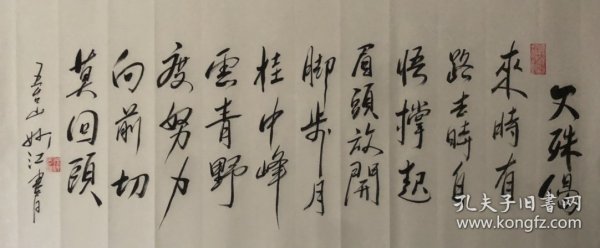 文殊偈
來時有
路去時自
悟撑起
眉頭放開
脚步月
桂中峰
雲青野
疫努力
向前切
莫回頭
五台山妙江書
孔夫子旧书网
www.kongfz.com